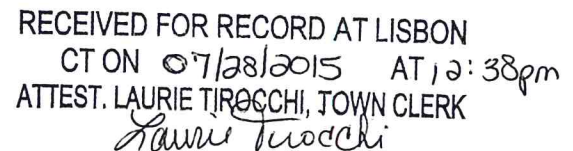 RECEIVED FOR RECORD AT LISBON
CT ON 07/28/2015 AT 12:38pm
ATTEST. LAURIE TIROCCHI, TOWN CLERK
Laurie Tirocchi